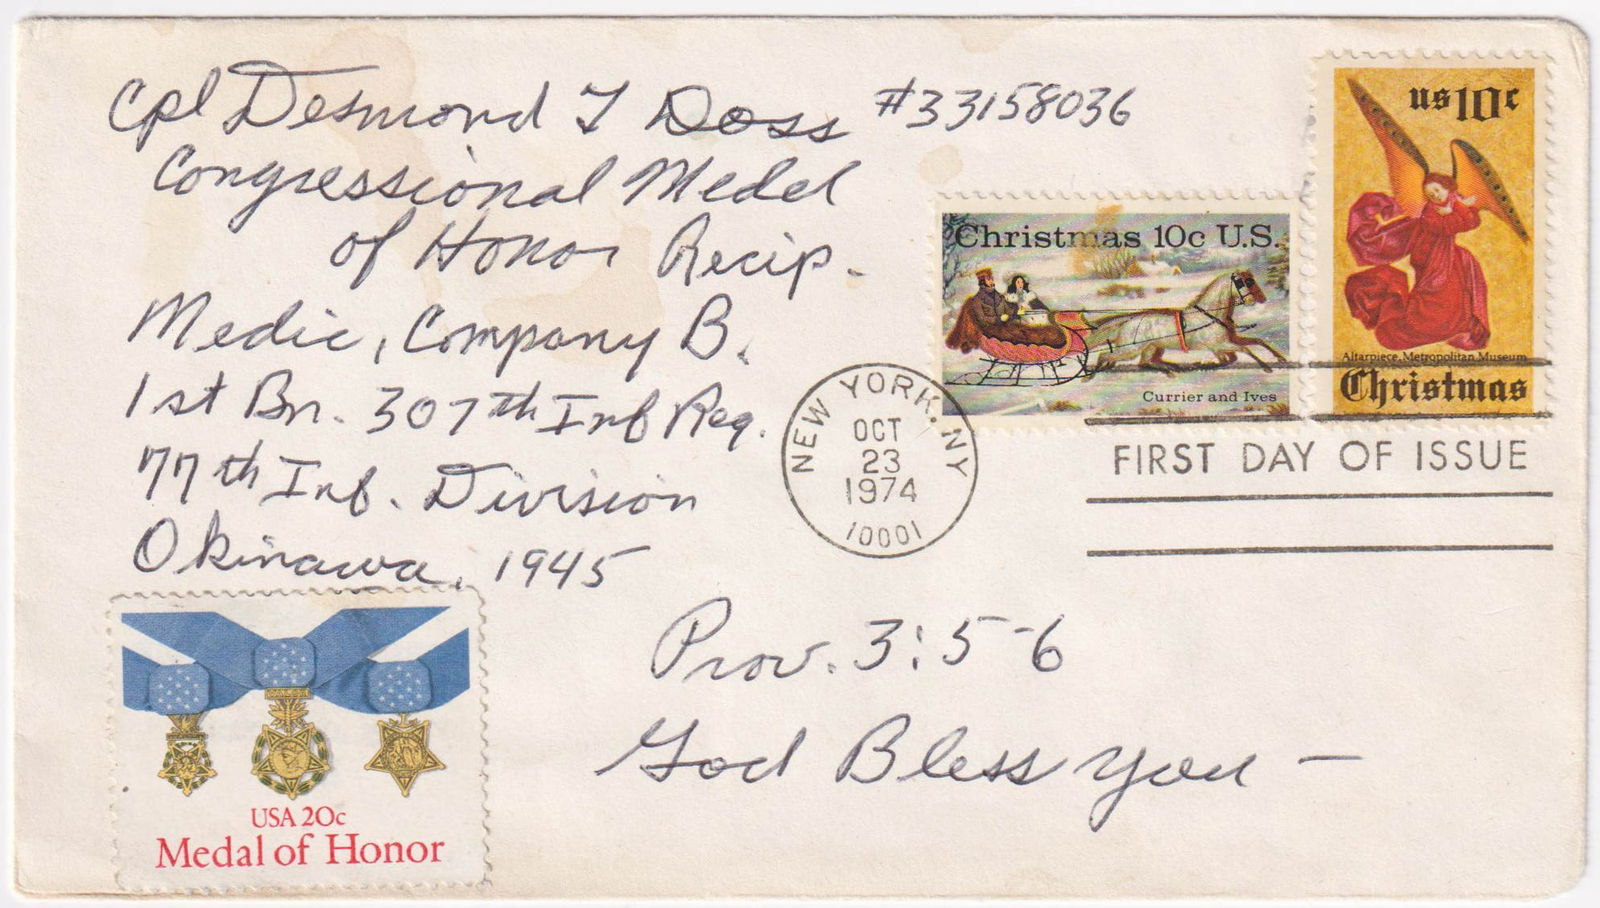 Cpl Desmond T Doss #33158036
Congressional Medel
of Honor Recip.
Medic, Company B.
1st Bn. 307th Inf Reg.
77th Inf. Division
Okinawa, 1945
Prov. 3:5-6
God Bless you —
US 10c
Altarpiece, Metropolitan Museum
Christmas
Christmas 10c U.S.
Currier and Ives
NEW YORK, NY
OCT
23
1974
10001
FIRST DAY OF ISSUE
USA 20c
Medal of Honor